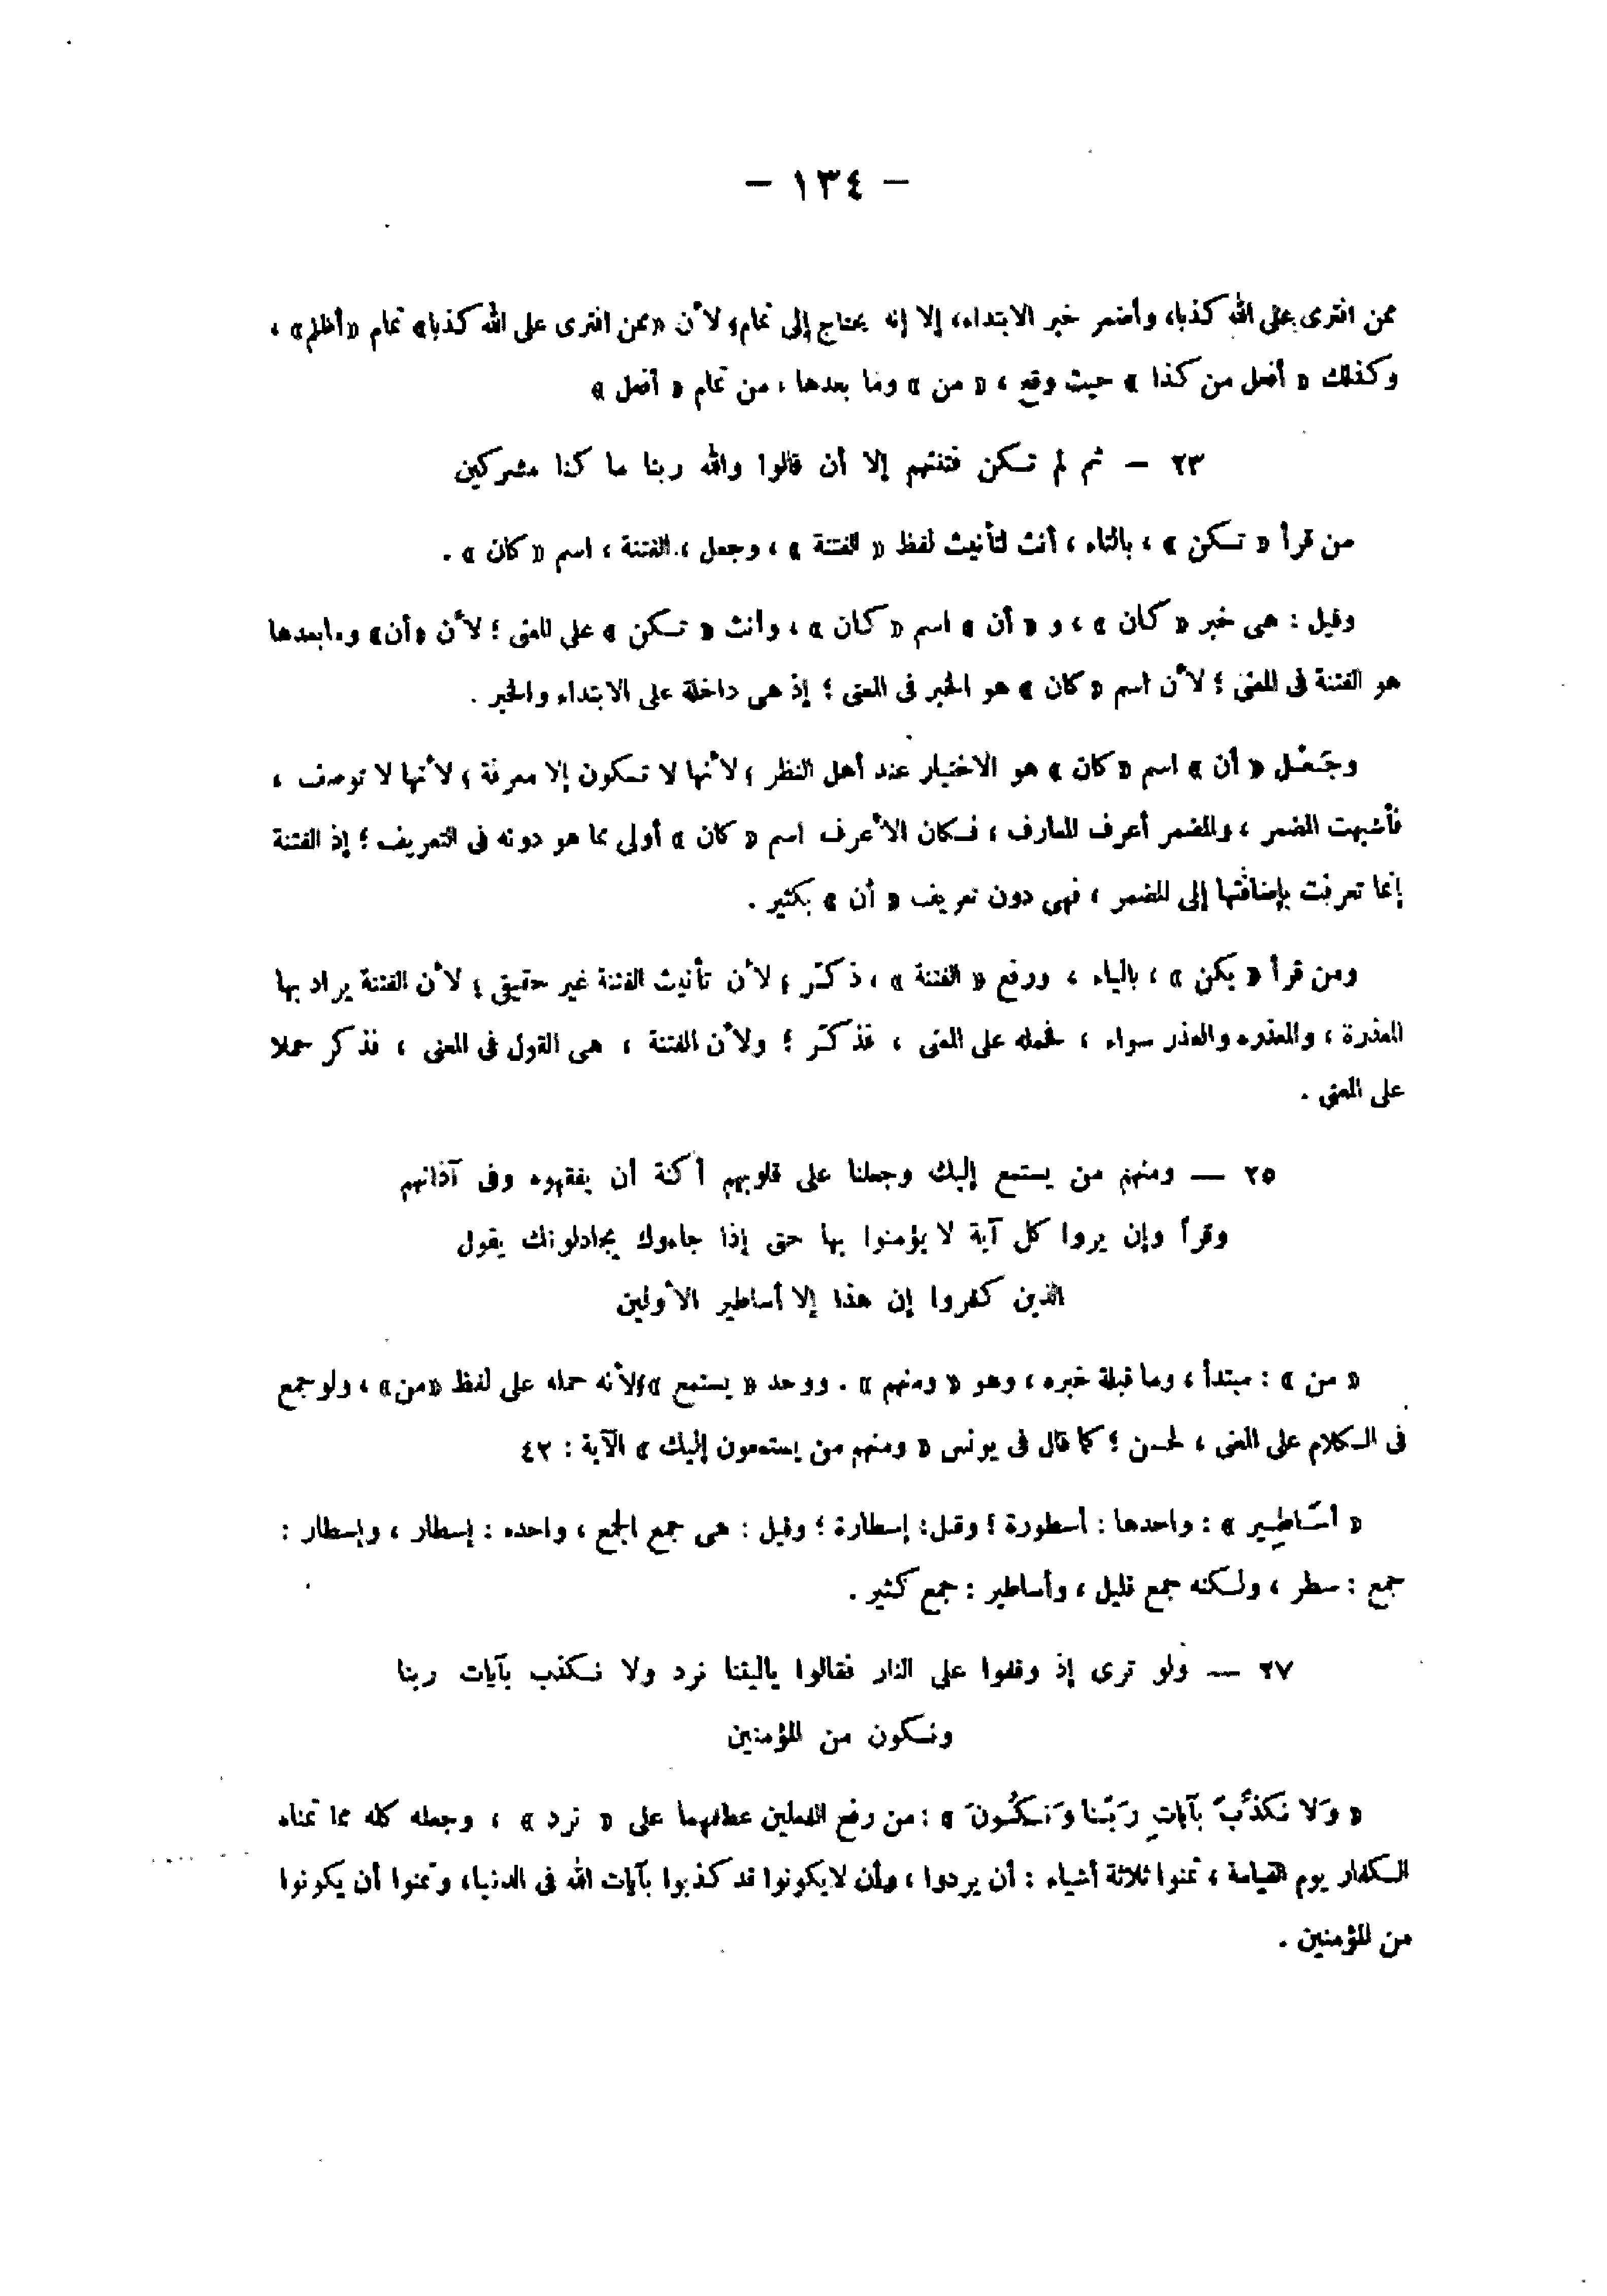 — ١٣٤ —
ممن افترى على الله كذبا، وأضمر خبر الابتداء، إلا إنه يحتاج إلى تمام؛ لأن «ممن افترى على الله كذبا» تمام «أظلم» ،
وكذلك « أفعل من كذا » حيث وقع ، « من » وما بعدها ، من تمام « أفعل »
٢٣ — ثم لم تكن فتنتهم إلا أن قالوا والله ربنا ما كنا مشركين
من قرأ « تكن » ، بالتاء ، أنث لتأنيث لفظ « الفتنة » ، وجعل ، الفتنة ، اسم « كان » .
وقيل : هى خبر « كان » ، و « أن » اسم « كان » ، وانث « تكن » على المعنى ؛ لأن «أن» وما بعدها
هو الفتنة فى المعنى ؛ لأن اسم « كان » هو الخبر فى المعنى ؛ إذ هى داخلة على الابتداء والخبر .
وجَعْل « أن » اسم « كان » هو الاختيار عند أهل النظر ؛ لأنها لا تكون إلا معرفة ؛ لأنها لا توصف ،
فأشبهت المضمر ، والمضمر أعرف المعارف ، فكان الأعرف اسم « كان » أولى مما هو دونه فى التعريف ؛ إذ الفتنة
إنما تعرفت بإضافتها إلى المضمر ، فهى دون تعريف « أن » بكثير .
ومن قرأ « يكن » ، بالياء ، ورفع « الفتنة » ، ذكّر ؛ لأن تأنيث الفتنة غير حقيقى ؛ لأن الفتنة يراد بها
المعذرة ، والمعذره والعذر سواء ، فحمله على المعنى ، فذكّر ؛ ولأن الفتنة ، هى القول فى المعنى ، فذكر حملا
على المعنى .
٢٥ — ومنهم من يستمع إليك وجعلنا على قلوبهم أكنة أن يفقهوه وفى آذانهم
وقرأ وإن يروا كل آية لا يؤمنوا بها حتى إذا جاءوك يجادلونك يقول
الذين كفروا إن هذا إلا أساطير الأولين
« من » : مبتدأ ، وما قبلة خبره ، وهو « ومنهم » . ووحد « يستمع »؛لأنه حمله على لفظ «من» ، ولو جمع
فى الكلام على المعنى ، لحسن ؛ كما قال فى يونس « ومنهم من يستمعون إليك » الآية : ٤٢
« أسَاطِير » : واحدها : أسطورة ؛ وقيل: إسطارة ؛ وقيل : هى جمع الجمع ، واحده : إسطار ، وإسطار :
جمع : سطر ، ولكنه جمع قليل ، وأساطير : جمع كثير .
٢٧ — ولو ترى إذ وقفوا على النار فقالوا ياليتنا نرد ولا نكذب بآيات ربنا
ونكون من المؤمنين
« وَلا نكَذِّبَ بآيَاتِ رَبّنا وَنكُونَ » : من رفع الفعلين عطفهما على « نرد » ، وجعله كله مما تمناه
الكفار يوم القيامة ، تمنوا ثلاثة أشياء : أن يردوا ، وأن لايكونوا قد كذبوا بآيات الله فى الدنيا، وتمنوا أن يكونوا
من المؤمنين .